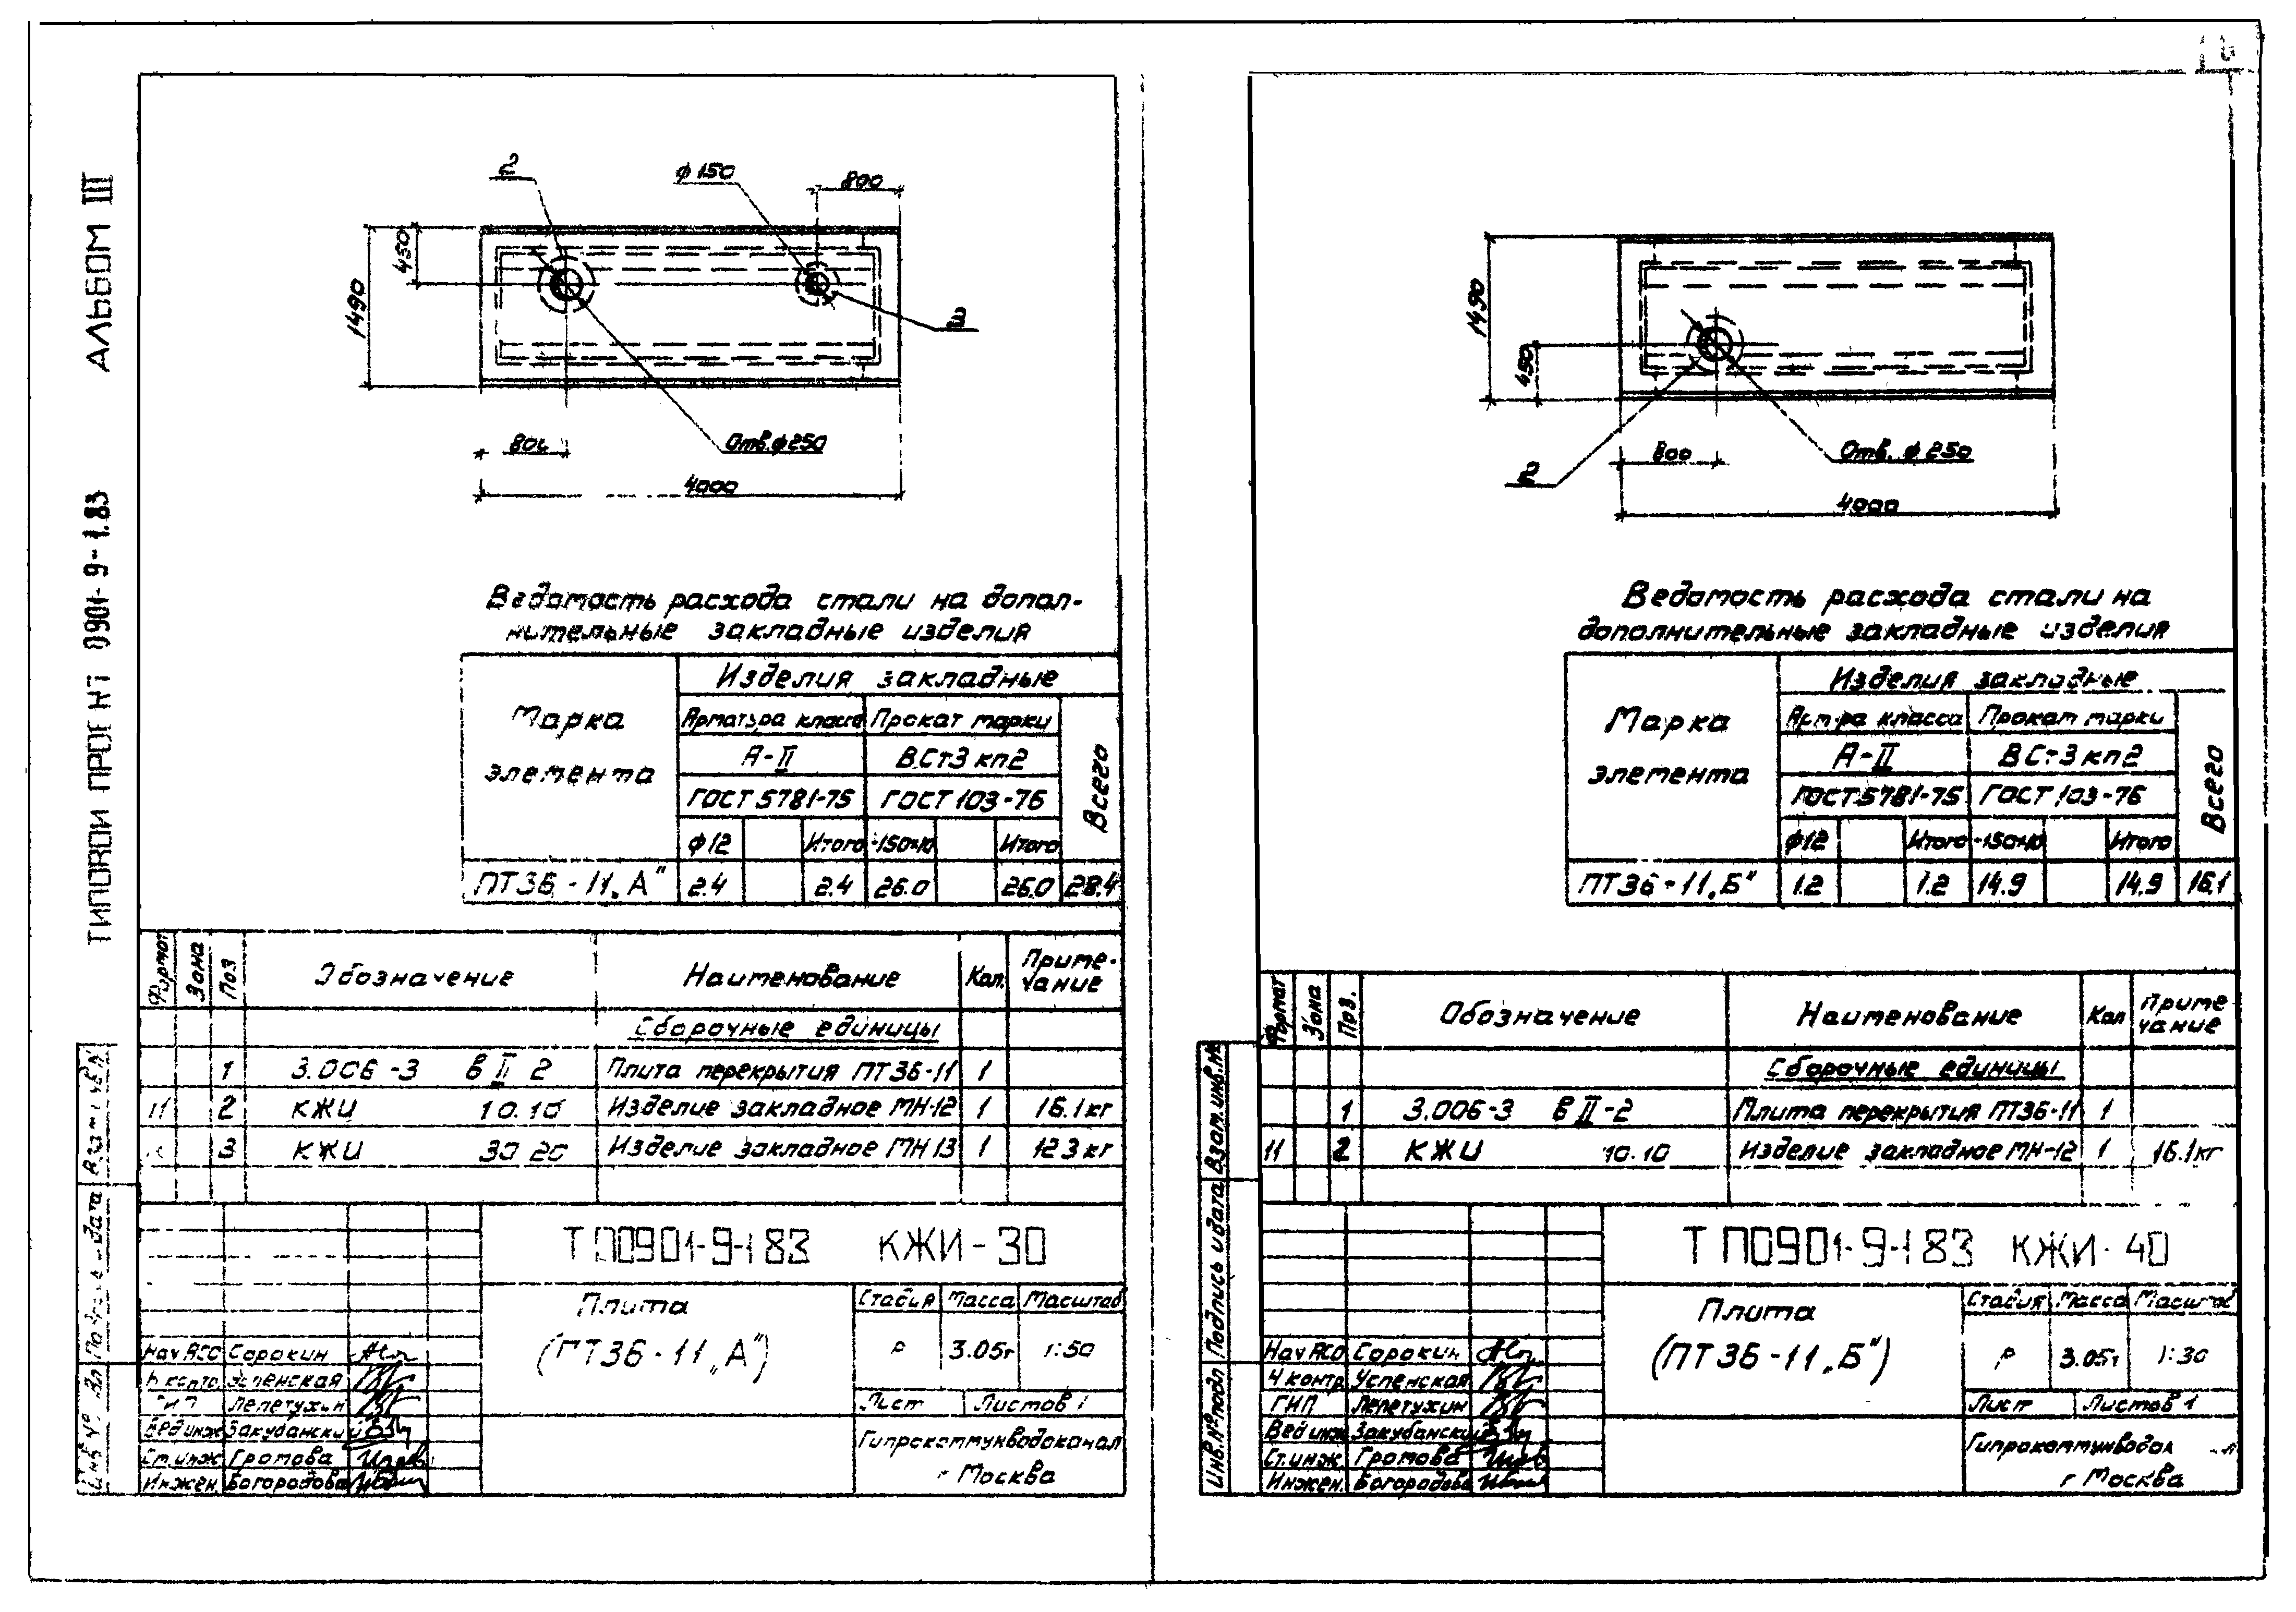 АЛЬБОМ III
ТИПОВОЙ ПРОЕКТ 0901-9-1.83
2
ф150
800
450
1490
2
800
Отв.ф250
4000
Ведомость расхода стали на допол-
нительные закладные изделия
Марка элемента
Изделия закладные
Арматура класса Прокат марки
А-II ВСт3кп2
ГОСТ 5781-75 ГОСТ 103-76
Всего
ф12 Итого -150×10 Итого
ПТ36-11„А" 2.4 2.4 26.0 26.0 28.4
Формат Зона Поз Обозначение Наименование Кол. Приме-
чание
Сборочные единицы
1 3.006-3 в II 2 Плита перекрытия ПТ36-11 1
11 2 КЖИ 10.10 Изделие закладное МН-12 1 16.1кг
3 КЖИ 30 20 Изделие закладное МН 13 1 12 3 кг
ТП0901-9-1 83 КЖИ-30
Плита
(ПТ36-11„А")
Стадия Масса Масштаб
Р 3.05т 1:50
Лист Листов 1
Гипрокоммунводоканал
г Москва
Нач АСО Сорокин
Н контр. Успенская
ГИП Лепетухин
Вед инж Закубанский
Ст.инж Громова
Инжен. Богородова
1490
450
2
800
Отв. ф 250
4000
Ведомость расхода стали на
дополнительные закладные изделия
Марка элемента
Изделия закладные
Арм-ра класса Прокат марки
А-II ВСт3кп2
ГОСТ5781-75 ГОСТ 103-76
Всего
ф12 Итого -150×10 Итого
ПТ36-11„Б" 1.2 1.2 14.9 14.9 16.1
Формат Зона Поз. Обозначение Наименование Кол Приме
чание
Сборочные единицы
1 3.006-3 в II-2 Плита перекрытия ПТ36-11 1
11 2 КЖИ 10.10 Изделие закладное МН-12 1 16.1кг
ТП0901-9-1 83 КЖИ-40
Плита
(ПТ36-11„Б")
Стадия Масса Масштаб
Р 3.05т 1:30
Лист Листов 1
г Москва
Нач АСО Сорокин
Н контр Успенская
ГИП Лепетухин
Вед инж Закубанский
Ст.инж. Громова
Инжен. Богородова
Инв.№подл Подпись и дата Взам.инв.№